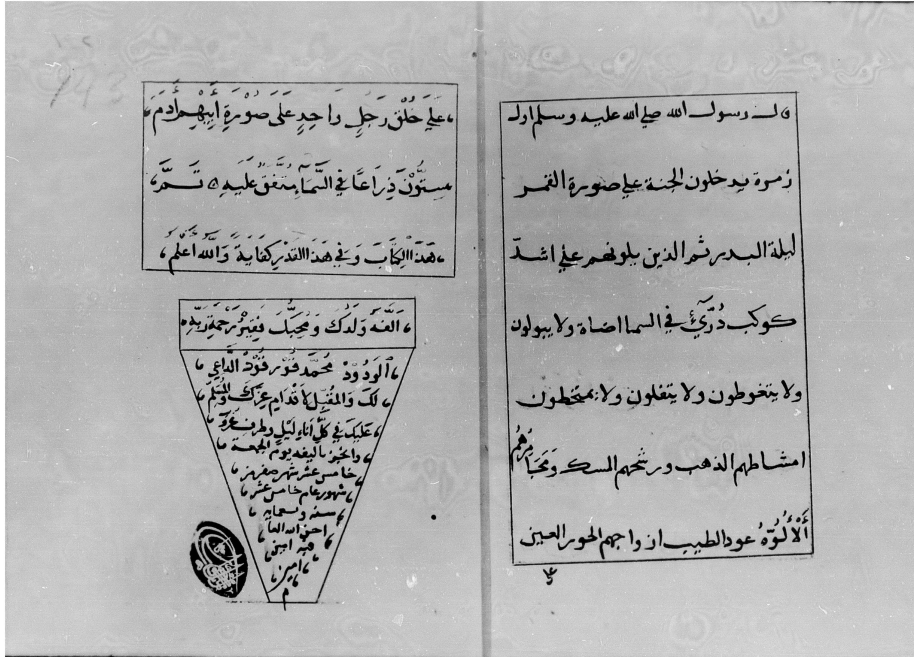 قال رسول الله صلي الله عليه وسلم اول
زمرة يدخلون الجنة علي صورة القمر
ليلة البدر ثم الذين يلونهم علي اشدّ
كوكب دُرِّيٍّ في السما اضاة ولا يبولون
ولا يتغوطون ولا يتفلون ولا يمتخطون
امشاطهم الذهب ورشحهم المسك وَمَجَامِرُهُمُ
أَلْأُلُوَّةُ عود الطيب ازواجهم الحور العين
عَلَي خَلْقِ رَجُلٍ وَاحِدٍ عَلَى صُورَةِ أَبِيهِمْ أَدَمَ
سِتُّونَ ذِرَاعًا فِي السَّمَآءِ مُتَّفَقٌ عَلَيهِ ٥ تَمَّ
هَذَا الْكِتَابَ وَفِي هَذَا القَدْرِ كِفَايَةٌ وَاللهُ اَعْلَمُ
اَلَّفَهُ وَلَدُكَ وَمُحِبُّكَ فَقِيرُ رَحْمَةِ رَبِّهِ
اَلوَدُودِ مُحَمَّد الدَّاعِي
لَكَ وَالمُقَبِّلِ لِأَقْدَامِ عِزِّكَ وَالمُسَلِّمِ
عَلَيكَ فِي كُلِّ أَنَاءِ لَيلٍ وطرف
تأليفه يوم الجمعة
خامس عشر شهر صفر من
شهور عام خامس عشر
سنة
الله
امين
م